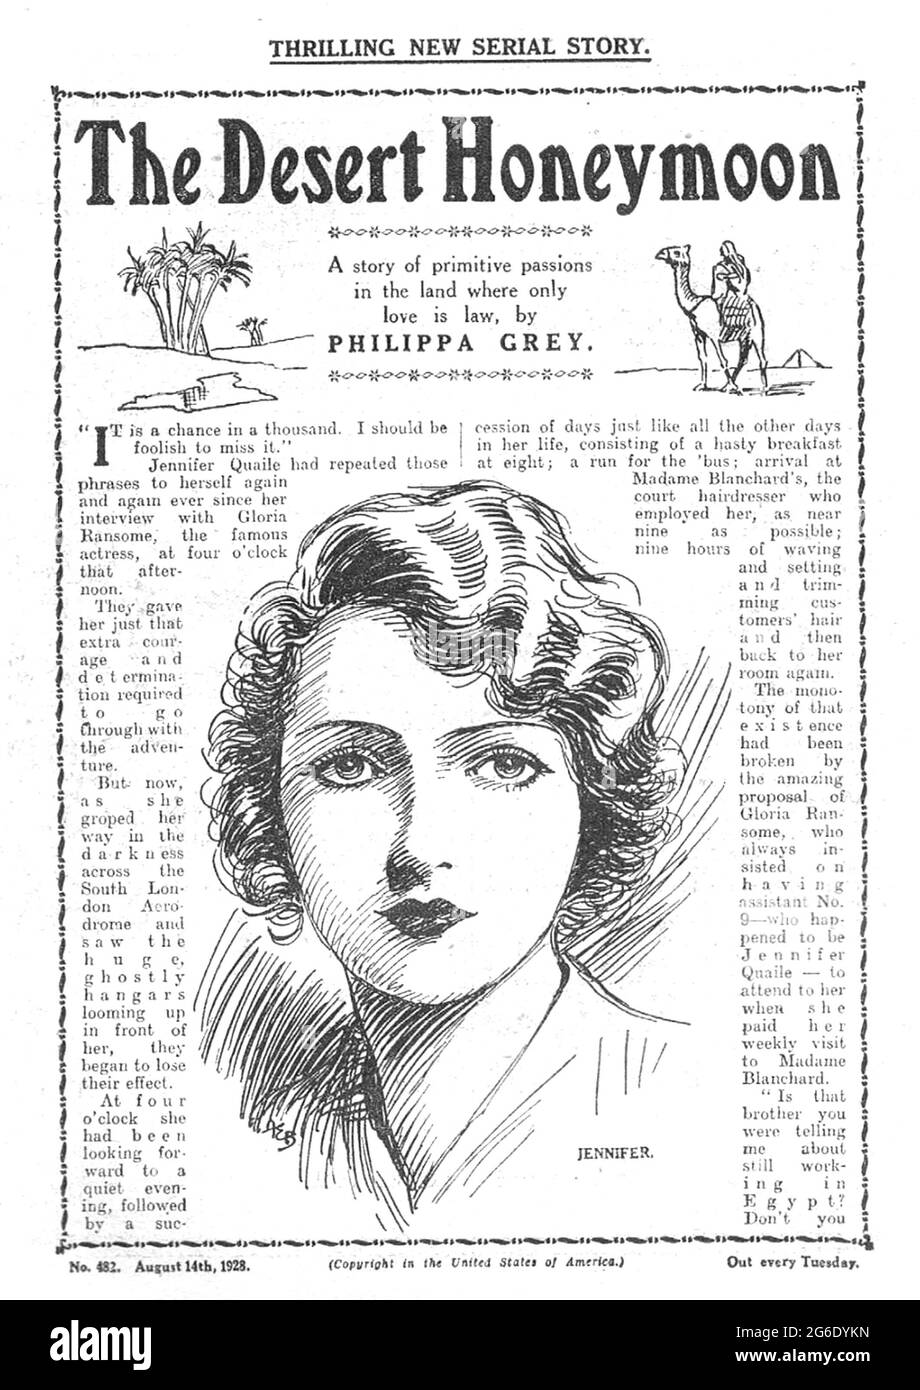 THRILLING NEW SERIAL STORY.
The Desert Honeymoon
A story of primitive passions
in the land where only
love is law, by
PHILIPPA GREY.
"IT is a chance in a thousand. I should be
foolish to miss it."
Jennifer Quaile had repeated those
phrases to herself again
and again ever since her
interview with Gloria
Ransome, the famous
actress, at four o'clock
that after-
noon.
They gave
her just that
extra cour-
age and
determina-
tion required
to go
through with
the adven-
ture.
But now,
as she
groped her
way in the
darkness
across the
South Lon-
don Aero-
drome and
saw the
huge,
ghostly
hangars
looming up
in front of
her, they
began to lose
their effect.
At four
o'clock she
had been
looking for-
ward to a
quiet even-
ing, followed
by a suc-
cession of days just like all the other days
in her life, consisting of a hasty breakfast
at eight; a run for the 'bus; arrival at
Madame Blanchard's, the
court hairdresser who
employed her, as near
nine as possible;
nine hours of waving
and setting
and trim-
ming cus-
tomers' hair
and then
back to her
room again.
The mono-
tony of that
existence
had been
broken by
the amazing
proposal of
Gloria Ran-
some, who
always in-
sisted on
having
assistant No.
9—who hap-
pened to be
Jennifer
Quaile — to
attend to her
when she
paid her
weekly visit
to Madame
Blanchard.
"Is that
brother you
were telling
me about
still work-
ing in
Egypt?
Don't you
AEB
JENNIFER.
No. 482. August 14th, 1928.
(Copyright in the United States of America.)
Out every Tuesday.
alamy
Image ID: 2G6DYKN
www.alamy.com